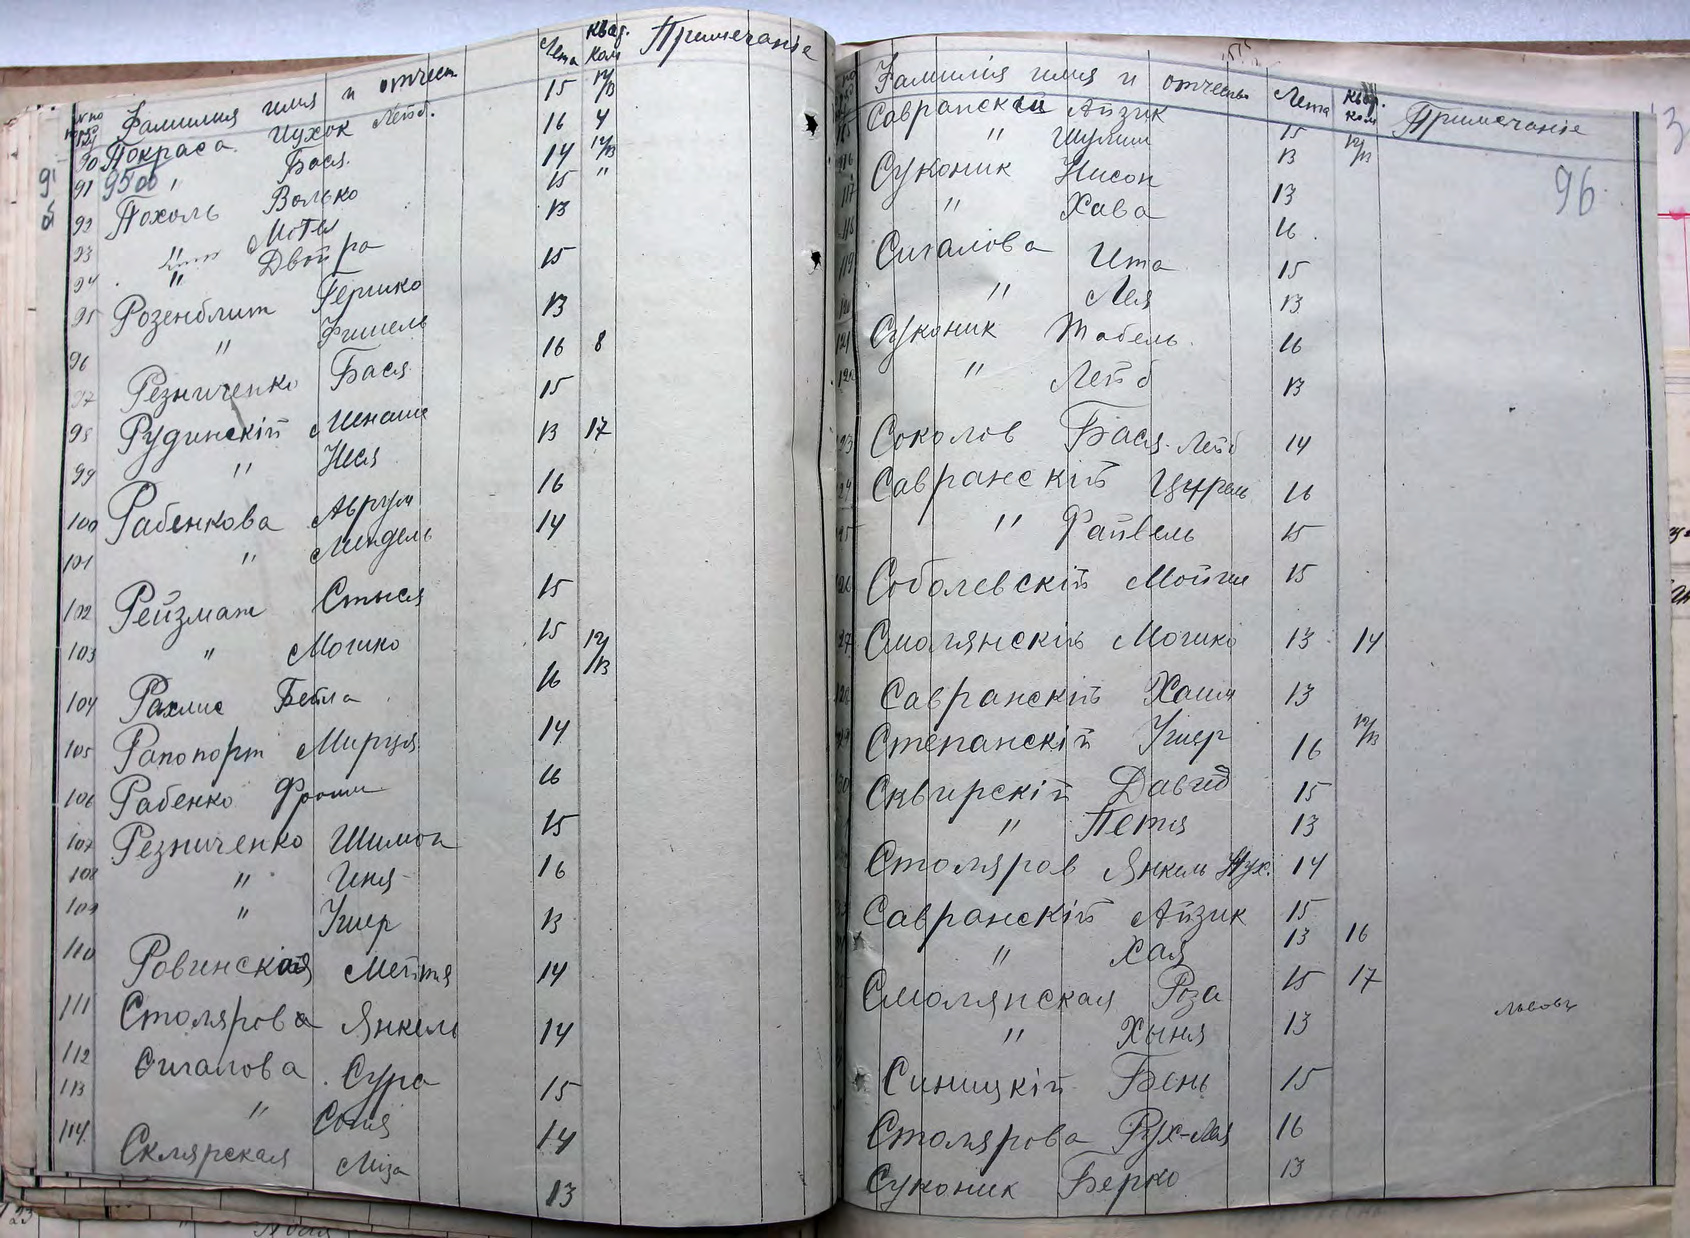 № по Фамилия имя и отчест. Лета квар. ком Примечаніе
90 Покраса Ицхок Лейб. 15 12/13
91 " Бася 16 4
92 Похоль Волько 14 12/13
93 " Мотя 15 "
94 " Двойра 13
95 Розенблит Гершко 15
96 " Фишель 13
97 Резниченко Бася 16 8
98 Рудинскій Менаше 15
99 " Неся 13 17
100 Рабенкова Аврум 16
101 " Миндель 14
102 Рейзман Стыся 15
103 " Мошко 15 12/13
104 Рахлис Бейла 16
105 Рапопорт Мирця 14
106 Рабенко Фроим 16
107 Резниченко Шимон 15
108 " Иня 16
109 " Ушер 13
110 Ровинская Мейтя 14
111 Столярова Янкель 14
112 Сигалова Сура 15
113 " Соня 14
114 Склярская Миза 13
Фамилія имя и отчество Лета квар. ком Примечаніе
96
Савранскій Айзик 15 12/13
" Шулим 13
Суконик Нисон 13
" Хава 16
Сигалова Ита 15
" Лея 13
Суконик Тобель 16
" Лейб 13
Соколов Бася Лейб 14
Савранскій Цирель 16
" Файвель 15
Соболевскій Мойше 15
Смолянскій Мошко 13 14
Савранскій Хаим 13
Степанскій Ушер 16 12/13
Сквирскій Давид 15
" Петя 13
Столяров Янкель Нух. 14
Савранскій Айзик 15
" Хая 13 16
Смолянская Роза 15 17
" Хыня 13
Львовъ
Синицкій Бень 15
Столярова Рух-Лая 16
Суконик Берко 13